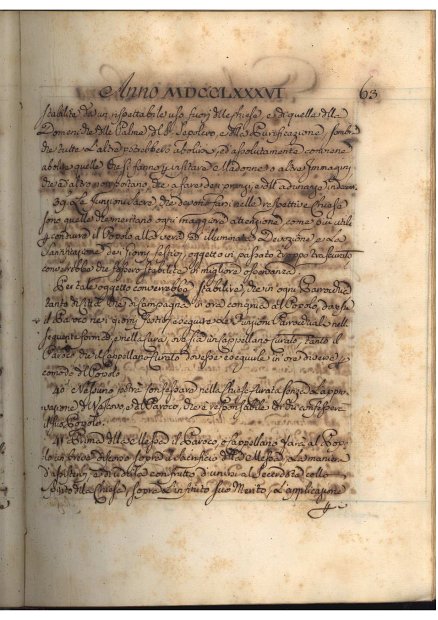 Anno MDCCLXXXVI 63
stabilite da un rispettabile uso fuori delle chiese, e di quelle della
Domenica delle Palme del S. Sepolcro, e della Purificazione, sembra
che tutte l'altre potrebbero abolirsi, ed assolutamente conviene
abolire quelle che si fanno per visitare Madonne, o altre Immagini
che ad altro non portano, che a fare dei pranzi, e dell'adunanze indecenti.
39. Le Funzioni sacre che devono farsi nelle respettive Chiese
sono quelle che meritano ogni maggiore attenzione, come più utili
p. condurre il Popolo alla vera, ed illuminata Devozione, e alla
santificazione dei giorni festivi, oggetto in passato troppo trascurato
converrebbe che fossero stabilite in migliore osservanza.
Per tale oggetto converrebbe stabilire, che in ogni Parrocchia
tanto di Città che di Campagna in ora congrua al Popolo, dovesse
il Paroco nei giorni festivi eseguire le Funzioni Parrocchiali nella
seguente forma, e nella Cura, ove sia un Cappellano curato, tanto il
Paroco che il Cappellano Curato dovesse eseguirle in ore diverse p.
comodo del Popolo.
40. Nessuno potrà confessare nella Chiesa Curata senza l'appro-
vazione del Vescovo, ed il Paroco, che è responsabile di chi confessa
il suo Popolo.
41. Prima della Messa il Paroco, o Cappellano farà al Popo-
lo un breve discorso sopra il Sacrificio della Messa, e la maniera
d'assistervi, ed udirla con frutto, d'unirsi al Sacerdote collo
spirito della Chiesa, sopra l'infinito suo Merito, l'applicazione